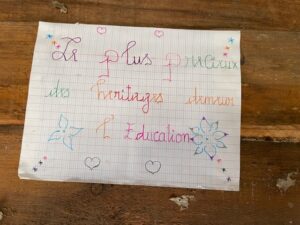 Le plus précieux
des héritages demeure
l'Education